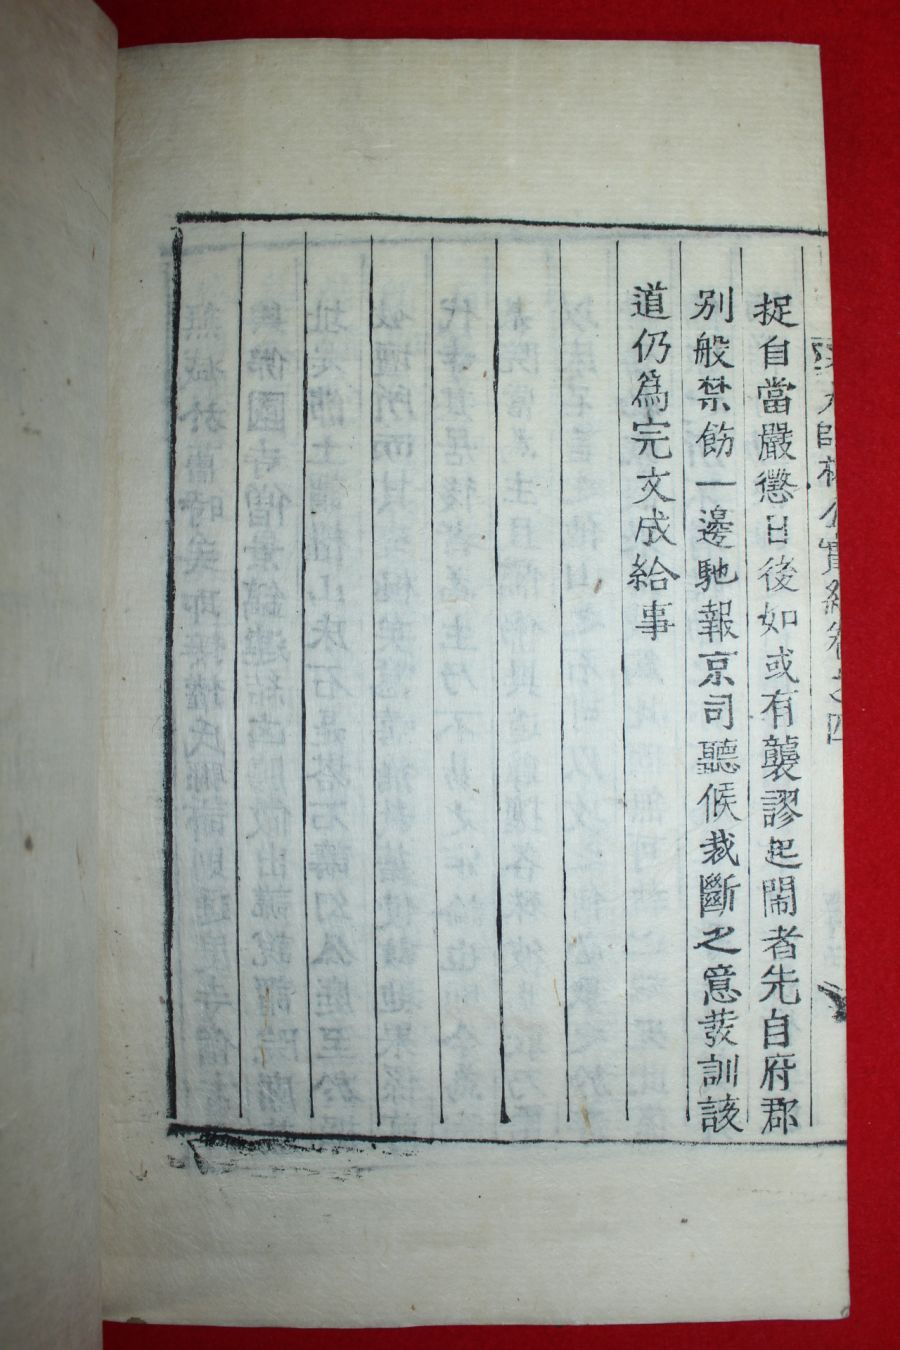 捉自當嚴懲日後如或有襲謬起閙者先自府郡
别般禁飭一邊馳報京司聽候裁斷之意發訓該
道仍爲完文成給事
公實紀卷之四